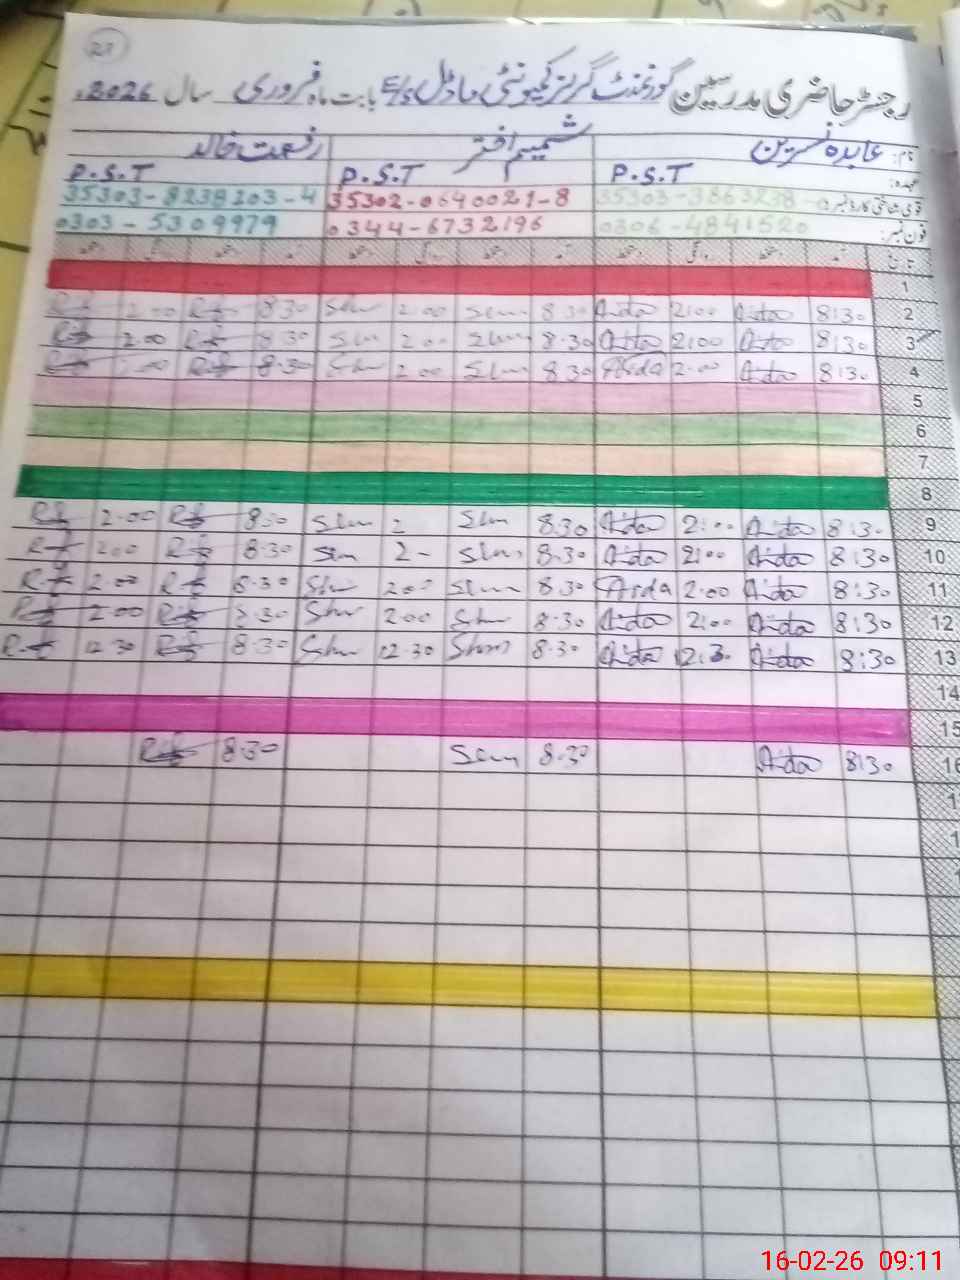 21
رجسٹر حاضری مدرسین گورنمنٹ گرلز کمیونٹی ماڈل E/S بابت ماہ فروری سال 2026ء
نام: عابدہ نسرین شمیم اختر رفعت خالد
عہدہ: P.S.T P.S.T P.S.T
قومی شناختی کارڈ نمبر: 35303-3863238 35302-0640021-8 35303-8238203-4
فون نمبر: 0306-4841520 0344-6732196 0303-5309979
تاریخ آمد دستخط روانگی دستخط آمد دستخط روانگی دستخط آمد دستخط روانگی دستخط
1
2 8:30 Aida 2:00 Aida 8.30 Slm 2.00 Slm 8.30 2.00
3 8:30 Aida 2:00 Aida 8.30 Slm 2.00 Slm 8.30 2.00
4 8:30 Aida 2:00 Aida 8.30 Slm 2.00 Slm 8.30 2.00
5
6
7
8
9 8:30 Aida 2:00 Aida 8.30 Slm 2 Slm 8.30 2.00
10 8:30 Aida 2:00 Aida 8.30 Slm 2- Slm 8.30 2.00
11 8:30 Aida 2:00 Aida 8.30 Slm 2.00 Slm 8.30 2.00
12 8:30 Aida 2:00 Aida 8.30 Slm 2.00 Slm 8.30 2.00
13 8:30 Aida 12:30 Aida 8.30 Slm 12.30 Slm 8.30 12.30
14
15
16 8:30 Aida 8.30 Slm 8.30
16-02-26 09:11